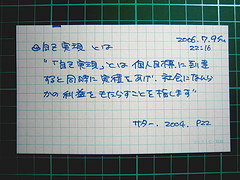 2006.7.9 Sun
22:16
自己実現 とは
"「自己実現」とは個人目標に到達
すると同時に実績をあげ、社会になんら
かの利益をもたらすことを指します"
サター. 2004. P22